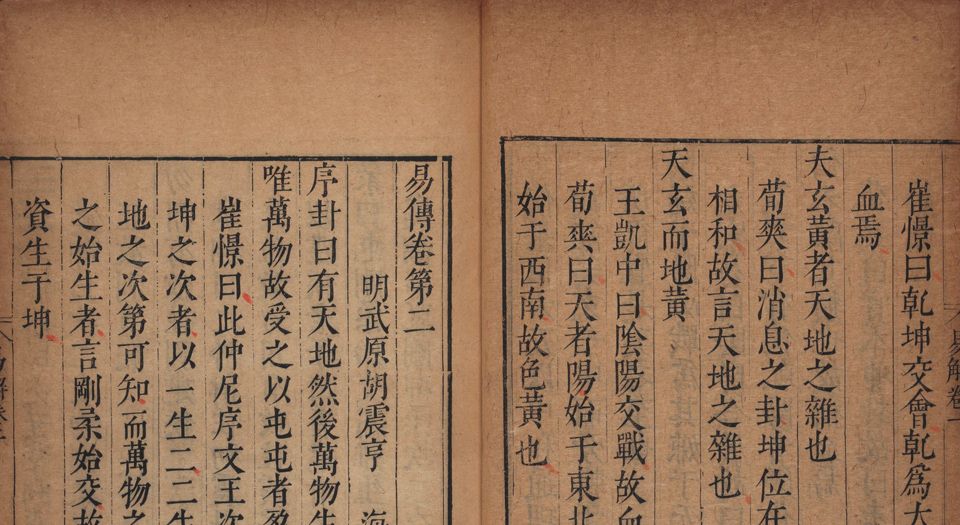 崔憬曰乾坤交會乾爲大
血焉
夫玄黃者天地之雜也
荀爽曰消息之卦坤位在
相和故言天地之雜也
天玄而地黃
王凱中曰陰陽交戰故血
荀爽曰天者陽始于東北
始于西南故色黃也
易傳卷第二
明武原胡震亨 海
序卦曰有天地然後萬物生
唯萬物故受之以屯屯者盈
崔憬曰此仲尼序文王次
坤之次者以一生二二生
地之次第可知而萬物之
之始生者言剛柔始交故
資生于坤